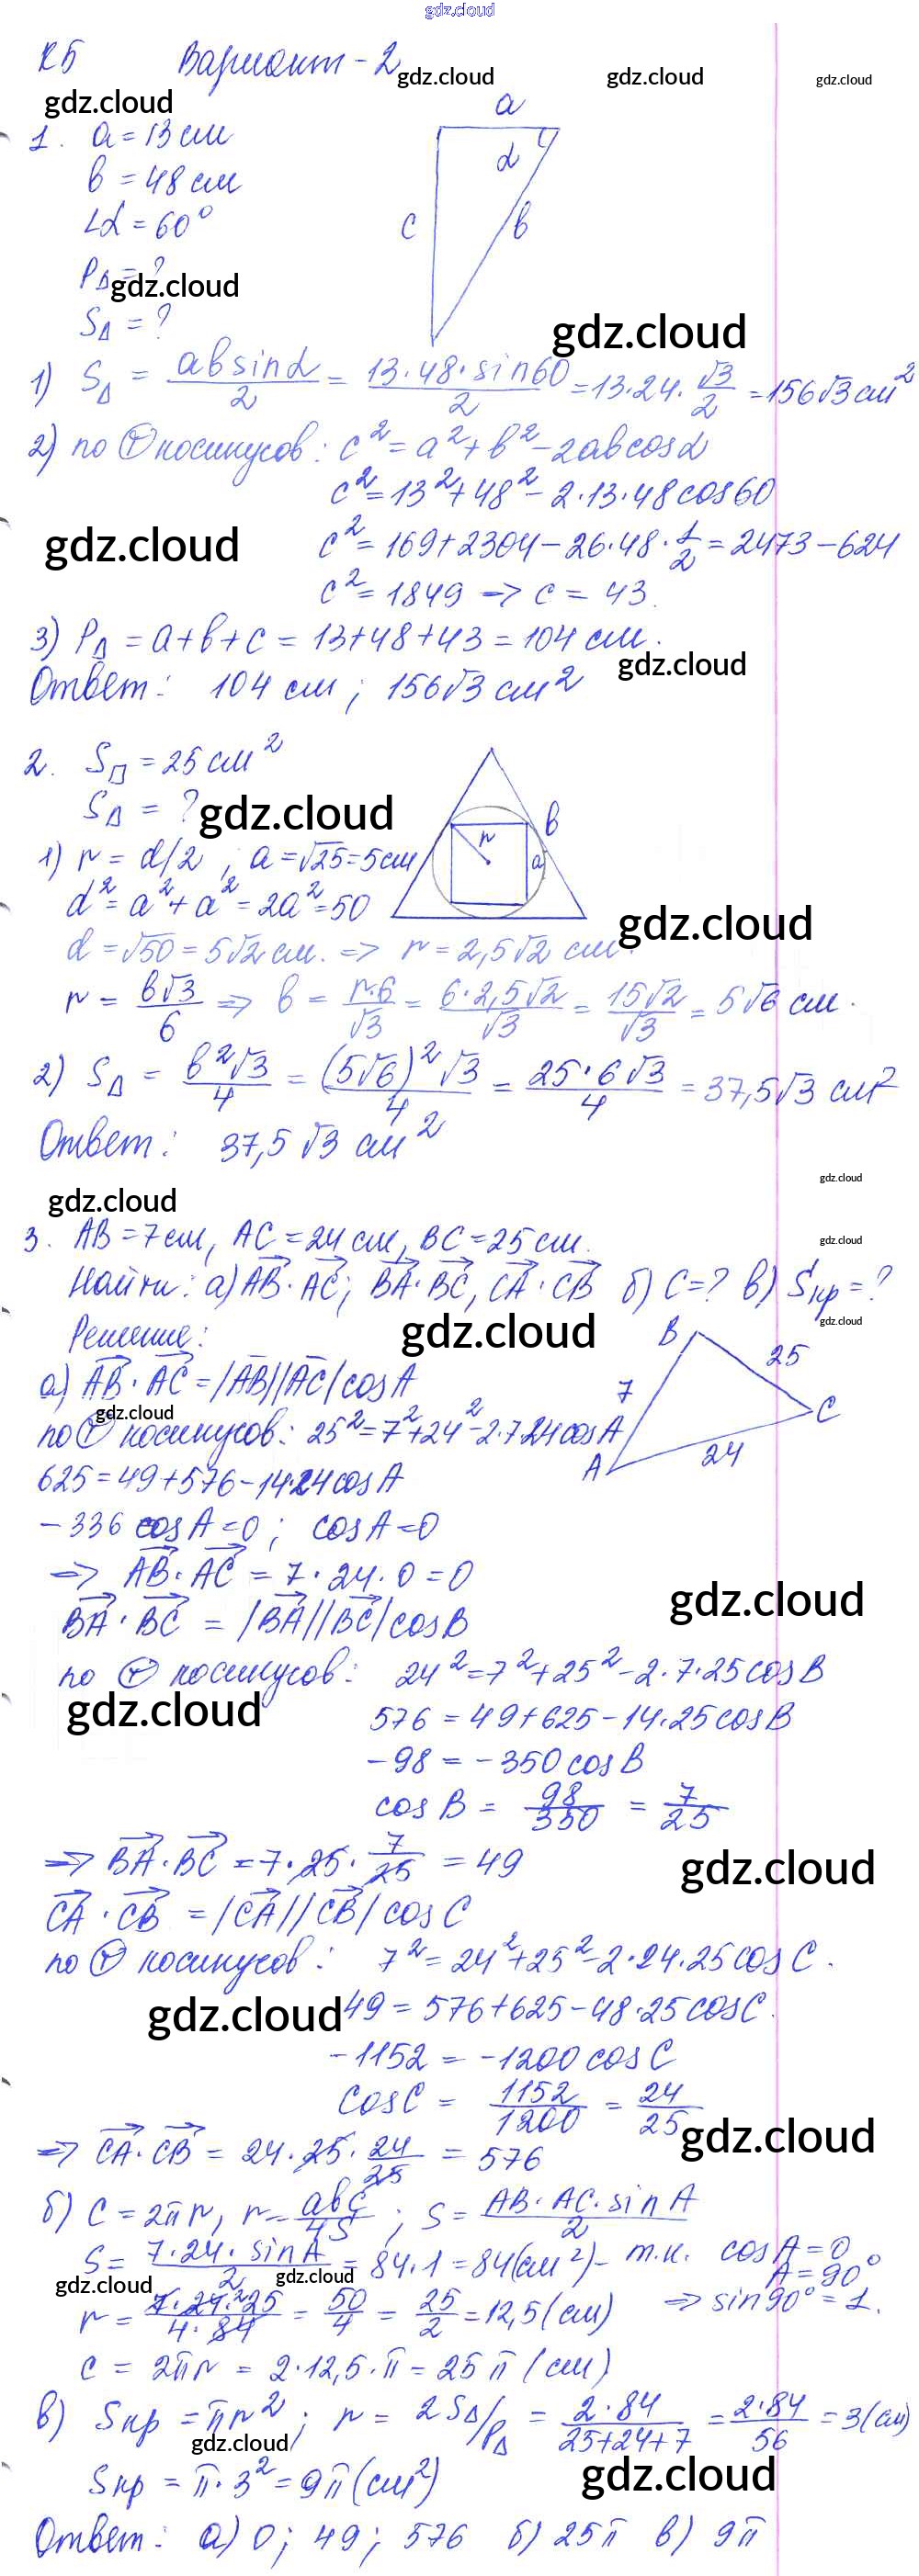 gdz.cloud
К5 Вариант-2
gdz.cloud gdz.cloud gdz.cloud
gdz.cloud
a
1. a = 13 см
b = 48 см
∠α = 60°
α
c b
P△ = ?
gdz.cloud
S△ = ?
gdz.cloud
1) S△ = ab sinα/2 = 13·48·sin60/2 = 13·24·√3/2 = 156√3 см²
2) по Ⓣ косинусов: c² = a² + b² - 2ab cosα
c² = 13² + 48² - 2·13·48 cos60
gdz.cloud
c² = 169 + 2304 - 26·48·1/2 = 2473 - 624
c² = 1849 => c = 43.
3) P△ = a + b + c = 13 + 48 + 43 = 104 см.
gdz.cloud
Ответ: 104 см; 156√3 см²
2. S▱ = 25 см²
S△ = ?
gdz.cloud
b
r
a
1) r = d/2, a = √25 = 5 см
d² = a² + a² = 2a² = 50
gdz.cloud
d = √50 = 5√2 см. => r = 2,5√2 см.
r = b√3/6 => b = r·6/√3 = 6·2,5√2/√3 = 15√2/√3 = 5√6 см.
2) S△ = b²√3/4 = (5√6)²√3/4 = 25·6√3/4 = 37,5√3 см²
Ответ: 37,5√3 см²
gdz.cloud
gdz.cloud
3. AB = 7 см, AC = 24 см, BC = 25 см.
gdz.cloud
Найти: а) AB·AC; BA·BC, CA·CB б) C = ? в) Sкр = ?
gdz.cloud
gdz.cloud
Решение:
B 25
7 C
A 24
а) AB·AC = |AB||AC| cosA
gdz.cloud
по Ⓣ косинусов: 25² = 7² + 24² - 2·7·24 cosA
625 = 49 + 576 - 14·24 cosA
-336 cosA = 0; cosA = 0
=> AB·AC = 7·24·0 = 0
gdz.cloud
BA·BC = |BA||BC| cosB
по Ⓣ косинусов: 24² = 7² + 25² - 2·7·25 cosB
gdz.cloud
576 = 49 + 625 - 14·25 cosB
-98 = -350 cosB
cosB = 98/350 = 7/25
=> BA·BC = 7·25·7/25 = 49
gdz.cloud
CA·CB = |CA||CB| cosC
по Ⓣ косинусов: 7² = 24² + 25² - 2·24·25 cosC.
gdz.cloud
49 = 576 + 625 - 48·25 cosC.
-1152 = -1200 cosC
cosC = 1152/1200 = 24/25
gdz.cloud
=> CA·CB = 24·25·24/25 = 576
б) C = 2πr, r = abc/4S; S = AB·AC·sinA/2
S = 7·24·sinA/2 = 84·1 = 84 (см²) - т.к. cosA = 0
A = 90°
gdz.cloud gdz.cloud
=> sin90° = 1.
r = 7·24·25/4·84 = 50/4 = 25/2 = 12,5 (см)
c = 2πr = 2·12,5·π = 25π (см)
в) Sкр = πr²; r = 2S△/P△ = 2·84/25+24+7 = 2·84/56 = 3 (см)
gdz.cloud
gdz.cloud
Sкр = π·3² = 9π (см²)
Ответ: а) 0; 49; 576 б) 25π в) 9π